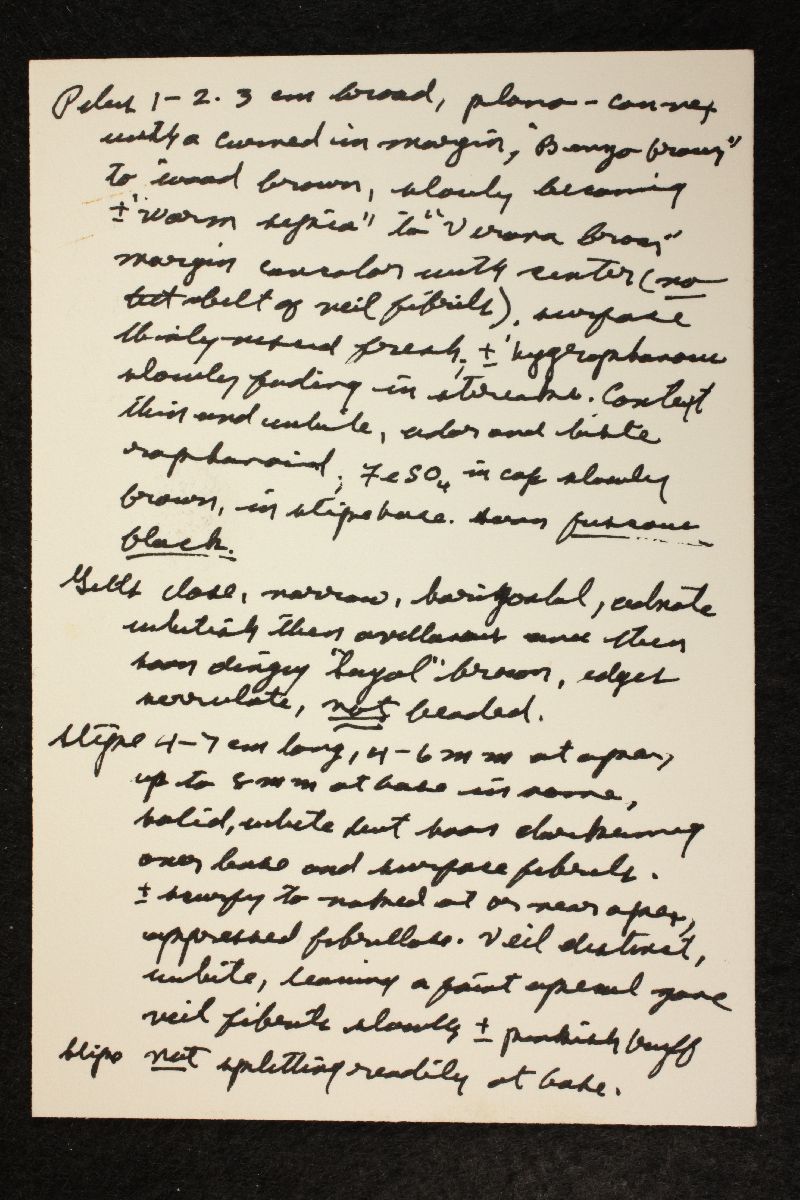 Pileus 1-2.3 cm broad, plano-convex
with a curved in margin, "Benzo brown"
to "wood brown, slowly becoming
± "warm sepia" to "Verona brown"
margin concolor with center (no
belt of veil fibrils), surface
thinly viscid fresh, ± hygrophanous
slowly fading in streaks. Context
thin and white, odor and taste
raphanoid, FeSO4 in cap slowly
brown, in stipe base. soon fuscous
black.
Gills close, narrow, horizontal, adnate
whitish then avellaneous and then
soon dingy "Sayal" brown, edges
serrulate, not beaded.
Stipe 4-7 cm long, 4-6 mm at apex,
up to 8 mm at base in some,
solid, white but soon darkening
over base and surface fibrils.
± scurfy to naked at or near apex,
appressed fibrillose. Veil distinct,
white, leaving a faint apical zone
veil fibrils slowly ± pinkish buff
Stipe not splitting readily at base.